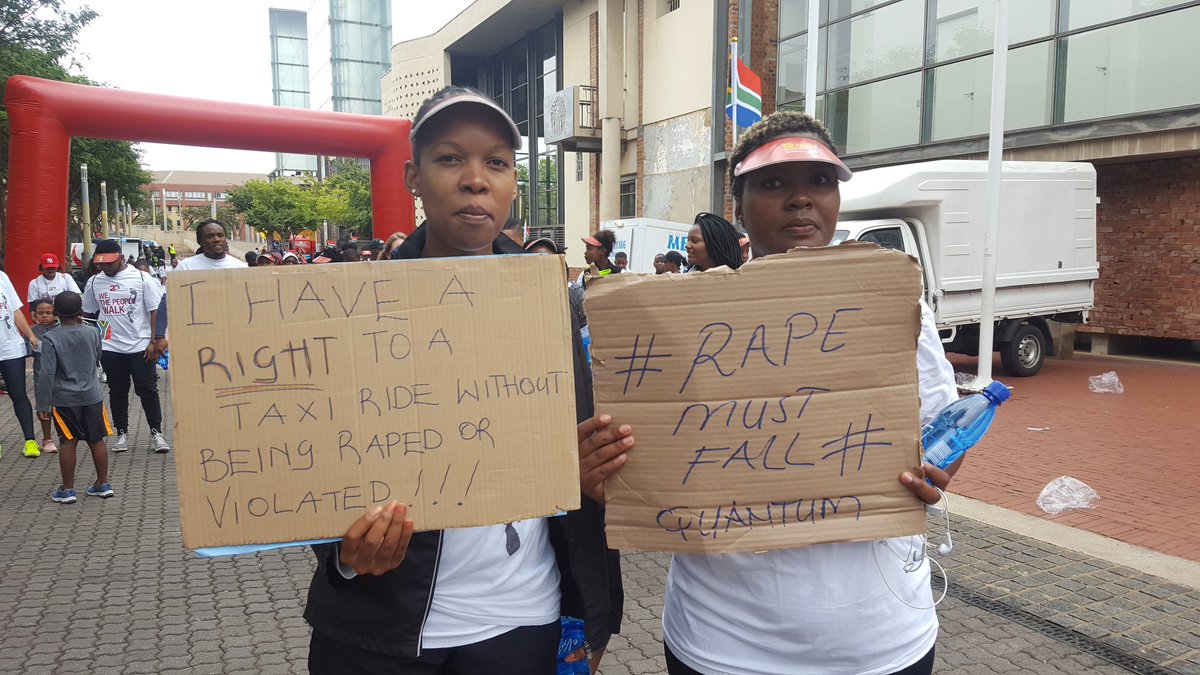 I HAVE A
RIGHT TO A
TAXI RIDE WITHOUT
BEING RAPED OR
VIOLATED!!!
# RAPE
MUST
FALL #
QUANTUM
20
WE,
THE PEOPLE
WALK
ME